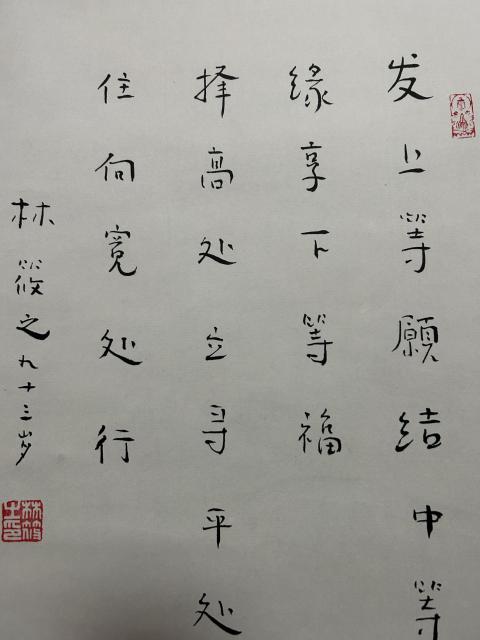 发上等願结中等
缘享下等福
择高处立寻平处
住向宽处行
林筱之九十三岁